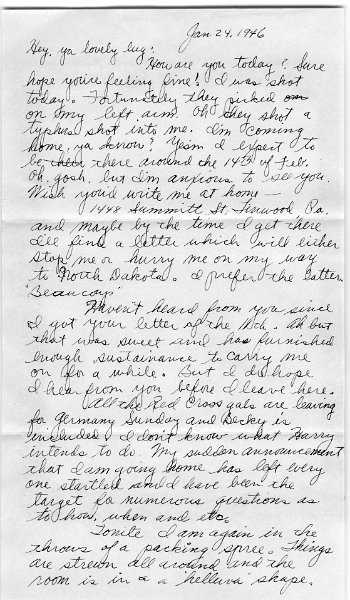 Jan 24, 1946
Hey, ya lovely lug:
How are you today? Sure
hope you're feeling fine! I was shot
today. Fortunately they picked on
on my left arm. Oh they shot a
typhus shot into me. I'm coming
home, ya know? Yesm I expect to
be there around the 14th of Feb.
Oh, gosh, but I'm anxious to see you.
Wish you'd write me at home —
1448 Summitt St, Linwood Pa.
and maybe by the time I get there
I'll find a letter which will either
stop me or hurry me on my way
to North Dakota. I prefer the latter
"Beaucoup"
Haven't heard from you since
I got your letter of the 10th. Ah but
that was sweet and has furnished
enough sustainance to carry me
on for a while. But I do hope
I hear from you before I leave here.
All the Red Cross gals are leaving
for Germany Sunday and Becky is
included. I don't know what Harry
intends to do. My sudden announcement
that I am going home has left every
one startled and I have been the
target for numerous questions as
to how, when and etc.
Tonite I am again in the
throws of a packing spree. Things
are strewn all around and the
room is in a a helluva shape.